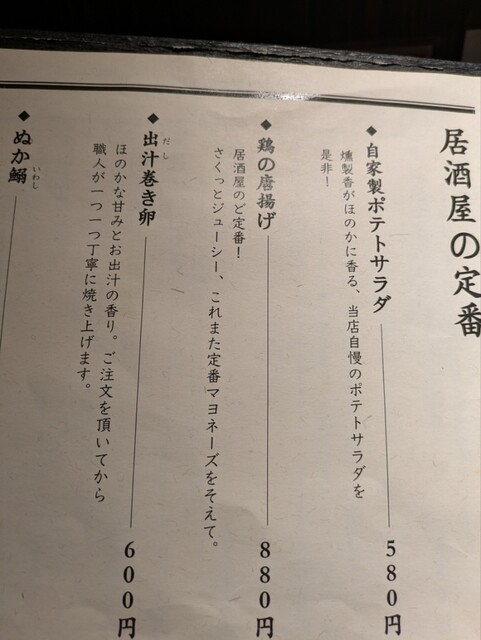 居酒屋の定番
◆自家製ポテトサラダ 580円
燻製香がほのかに香る、当店自慢のポテトサラダを
是非！
◆鶏の唐揚げ 880円
居酒屋のど定番！
さくっとジューシー、これまた定番マヨネーズをそえて。
だし
◆出汁巻き卵 600円
ほのかな甘みとお出汁の香り。ご注文を頂いてから
職人が一つ一つ丁寧に焼き上げます。
いわし
◆ぬか鰯